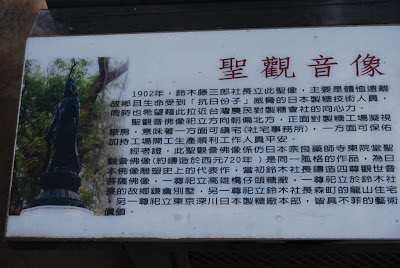 聖觀音像
1902年，鈴木藤三郎社長立此聖像，主要是體恤遠離
故鄉且生命受到「抗日份子」威脅的日本製糖技術人員，
同時也希望藉此拉近台灣農民對製糖會社的向心力。
聖觀音佛像祀立方向朝偏北方，正面對製糖工場凝視
單房，意味著一方面可鎮宅(社宅事務所)，一方面可保佑
加持工場開工生產順利工作人員平安。
經考證，此聖觀音佛像係仿日本奈良藥師寺東院堂聖
觀音佛像(約鑄造於西元720年)是同一風格的作品，為日
本佛像雕塑史上的代表作，當初鈴木社長鑄造四尊觀世音
菩薩佛像，一尊祀立高雄橋仔頭糖廠，一尊祀立於鈴木社
長的故鄉鎌倉別墅，另一尊祀立鈴木社長森町的龍山住宅
，另一尊祀立東京深川日本製糖廠本部，皆具不菲的藝術
價值。